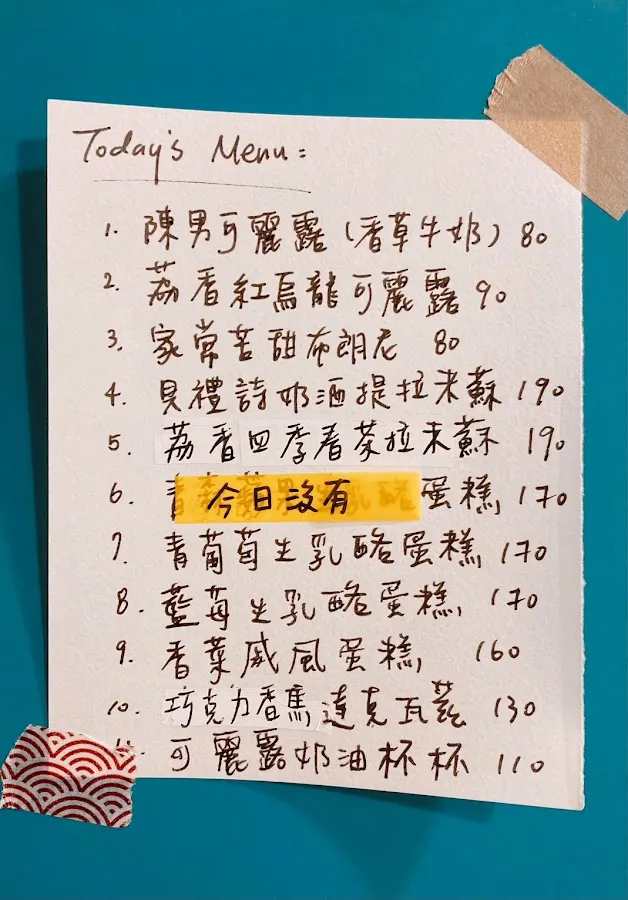 Today's Menu:
1. 陳男可麗露(香草牛奶) 80
2. 荔香紅烏龍可麗露 90
3. 家常苦甜布朗尼 80
4. 貝禮詩奶酒提拉米蘇 190
5. 荔香四季春茶拉米蘇 190
6. 青 今日沒有 乳酪蛋糕 170
7. 青葡萄生乳酪蛋糕 170
8. 藍莓生乳酪蛋糕 170
9. 香菜戚風蛋糕 160
10. 巧克力香蕉達克瓦茲 130
可麗露奶油杯杯 110